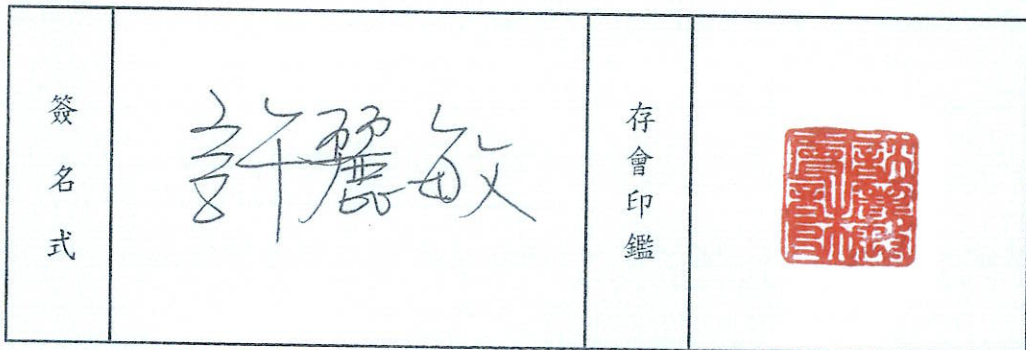 簽名式
許麗敏
存會印鑑